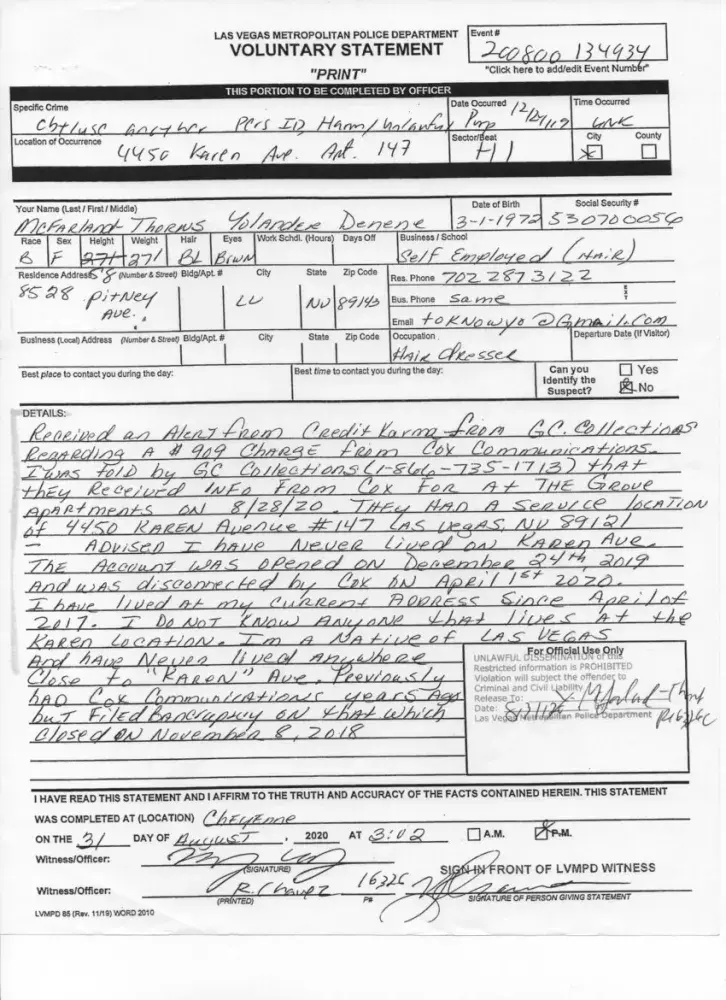 LAS VEGAS METROPOLITAN POLICE DEPARTMENT
VOLUNTARY STATEMENT
"PRINT"
Event #
200800 134934
"Click here to add/edit Event Number"
THIS PORTION TO BE COMPLETED BY OFFICER
Specific Crime
Obt/use another Pers ID, Harm/Unlawful Purp
Date Occurred
12/24/19
Time Occurred
UNK
Location of Occurrence
4450 Karen Ave. Apt. 147
Sector/Beat
H1
City
County
Your Name (Last / First / Middle)
McFarland-Thomas Yolander Denene
Date of Birth
3-1-1972
Social Security #
530700056
Race Sex Height Weight Hair Eyes Work Schdl. (Hours) Days Off Business / School
B F 5'8 271 BL Brwn Self Employed (Hair)
Residence Address (Number & Street) Bldg/Apt. # City State Zip Code
8528 Pitney Ave. LV NV 89143
Res. Phone 702 287 3122
Bus. Phone Same
EXT
Email toKNowyo@Gmail.com
Business (Local) Address (Number & Street) Bldg/Apt. # City State Zip Code
Occupation
Hair dresser
Departure Date (If Visitor)
Best place to contact you during the day:
Best time to contact you during the day:
Can you Identify the Suspect?
Yes
No
DETAILS:
Received an Alert from Credit Karma from G.C. Collections
Regarding A $909 charge from Cox Communications.
I was told by GC Collections (1-866-735-1713) that
they Received INFO From Cox For At THE Grove
Apartments on 8/28/20. They Had A Service location
of 4450 Karen Avenue #147 Las Vegas, NV 89121
– Advised I have Never Lived on Karen Ave.
The Account was opened on December 24th 2019
And was disconnected by Cox on April 1st 2020.
I have lived At my current Address Since April of
2017. I Do Not Know Anyone that lives At the
Karen Location. I'm A Native of Las Vegas
And have Never lived anywhere
Close to "Karen" Ave. Previously
had Cox Communications years Ago
but Filed Bancrupcy on that which
closed on November 8, 2018
For Official Use Only
UNLAWFUL DISSEMINATION of this
Restricted information is PROHIBITED
Violation will subject the offender to
Criminal and Civil Liability
Release To:
Date: 8/31/20
Las Vegas Metropolitan Police Department
I HAVE READ THIS STATEMENT AND I AFFIRM TO THE TRUTH AND ACCURACY OF THE FACTS CONTAINED HEREIN. THIS STATEMENT
WAS COMPLETED AT (LOCATION) Cheyenne
ON THE 31 DAY OF August , 2020 AT 3:02 A.M. P.M.
Witness/Officer:
(SIGNATURE)
SIGN IN FRONT OF LVMPD WITNESS
Witness/Officer: R. Chavez 1632C
(PRINTED)
P#
SIGNATURE OF PERSON GIVING STATEMENT
LVMPD 85 (Rev. 11/19) WORD 2010